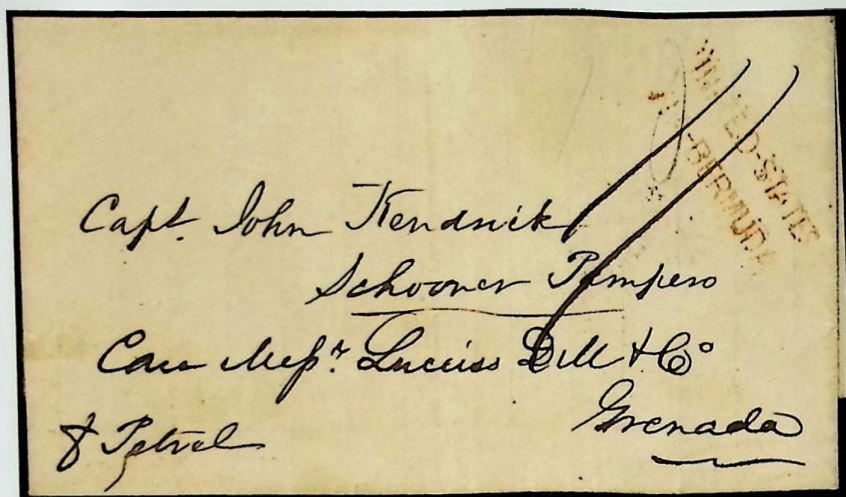 UNITED-STATES
VIA-BERMUDA
Capt. John Kendrick
Schooner Pampero
Care Messrs. Dill & Co
Grenada
Petrel